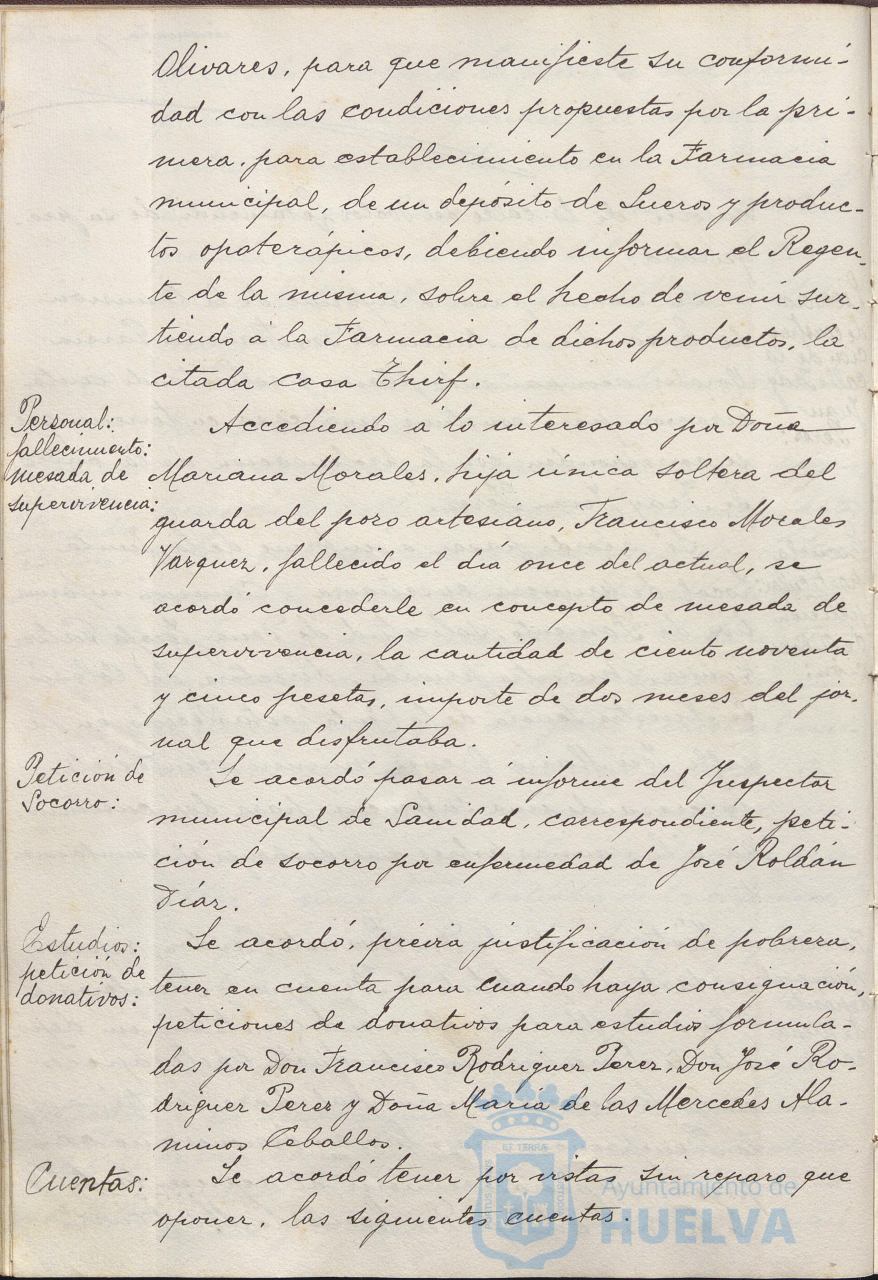 Olivares, para que manifieste su conformi-
dad con las condiciones propuestas por la pri-
mera, para establecimiento en la Farmacia
municipal, de un depósito de Sueros y produc-
tos opoterápicos, debiendo informar el Regen-
te de la misma, sobre el hecho de venir sur-
tiendo á la Farmacia de dichos productos, la
citada casa Thirf.
Personal:
fallecimiento:
mesada de
supervivencia:
Accediendo á lo interesado por Doña
Mariana Morales, hija única soltera del
guarda del pozo artesiano, Francisco Morales
Vazquez, fallecido el día once del actual, se
acordó concederle en concepto de mesada de
supervivencia, la cantidad de ciento noventa
y cinco pesetas, importe de dos meses del jor-
nal que disfrutaba.
Petición de
Socorro:
Se acordó pasar á informe del Inspector
municipal de Sanidad, correspondiente, peti-
ción de socorro por enfermedad de José Roldán
Díaz.
Estudios:
petición de
donativos:
Se acordó, prévia justificación de pobreza,
tener en cuenta para cuando haya consignación,
peticiones de donativos para estudios formula-
das por Don Francisco Rodriguez Perez, Don José Ro-
driguez Perez y Doña María de las Mercedes Ala-
minos Ceballos.
Cuentas:
Se acordó tener por vistas sin reparo que
oponer, las siguientes cuentas.
Ayuntamiento de
HUELVA